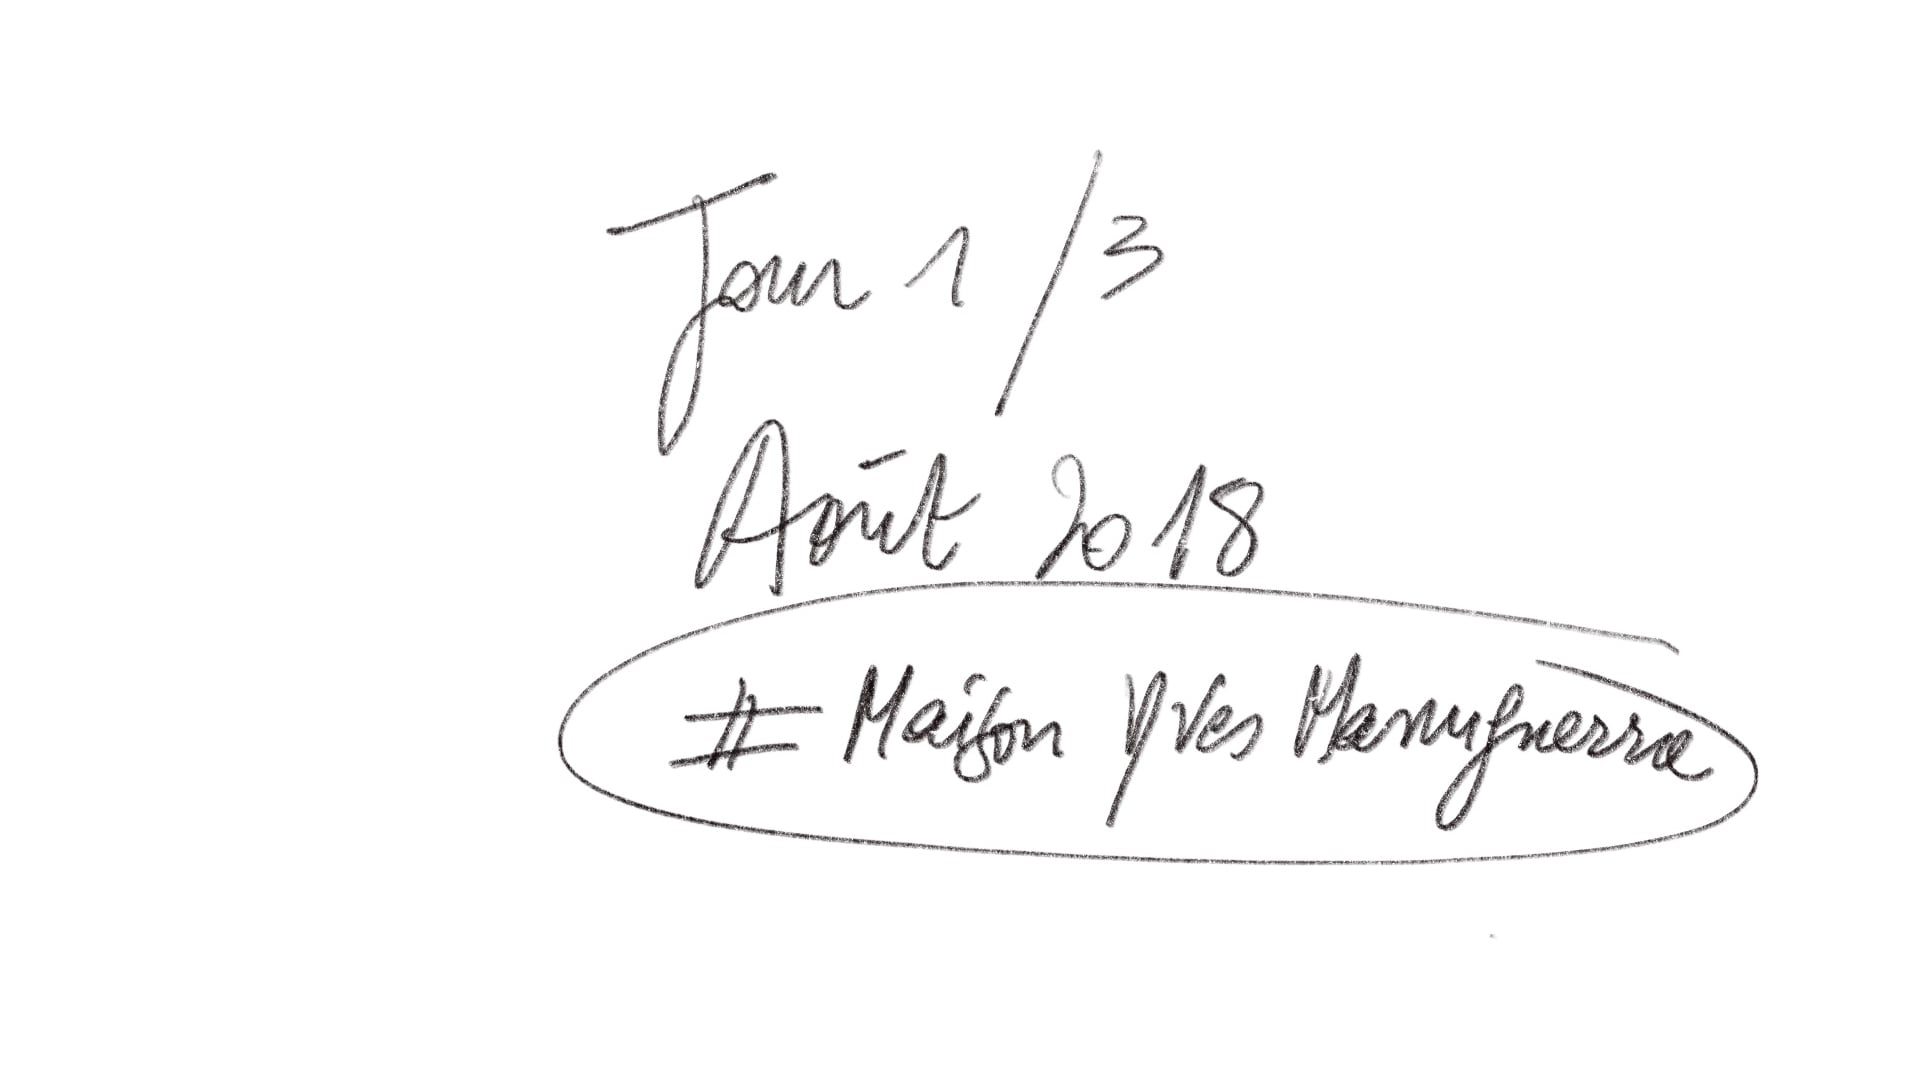 Jour 1/3
Août 2018
# Maison Yves Manuguerra